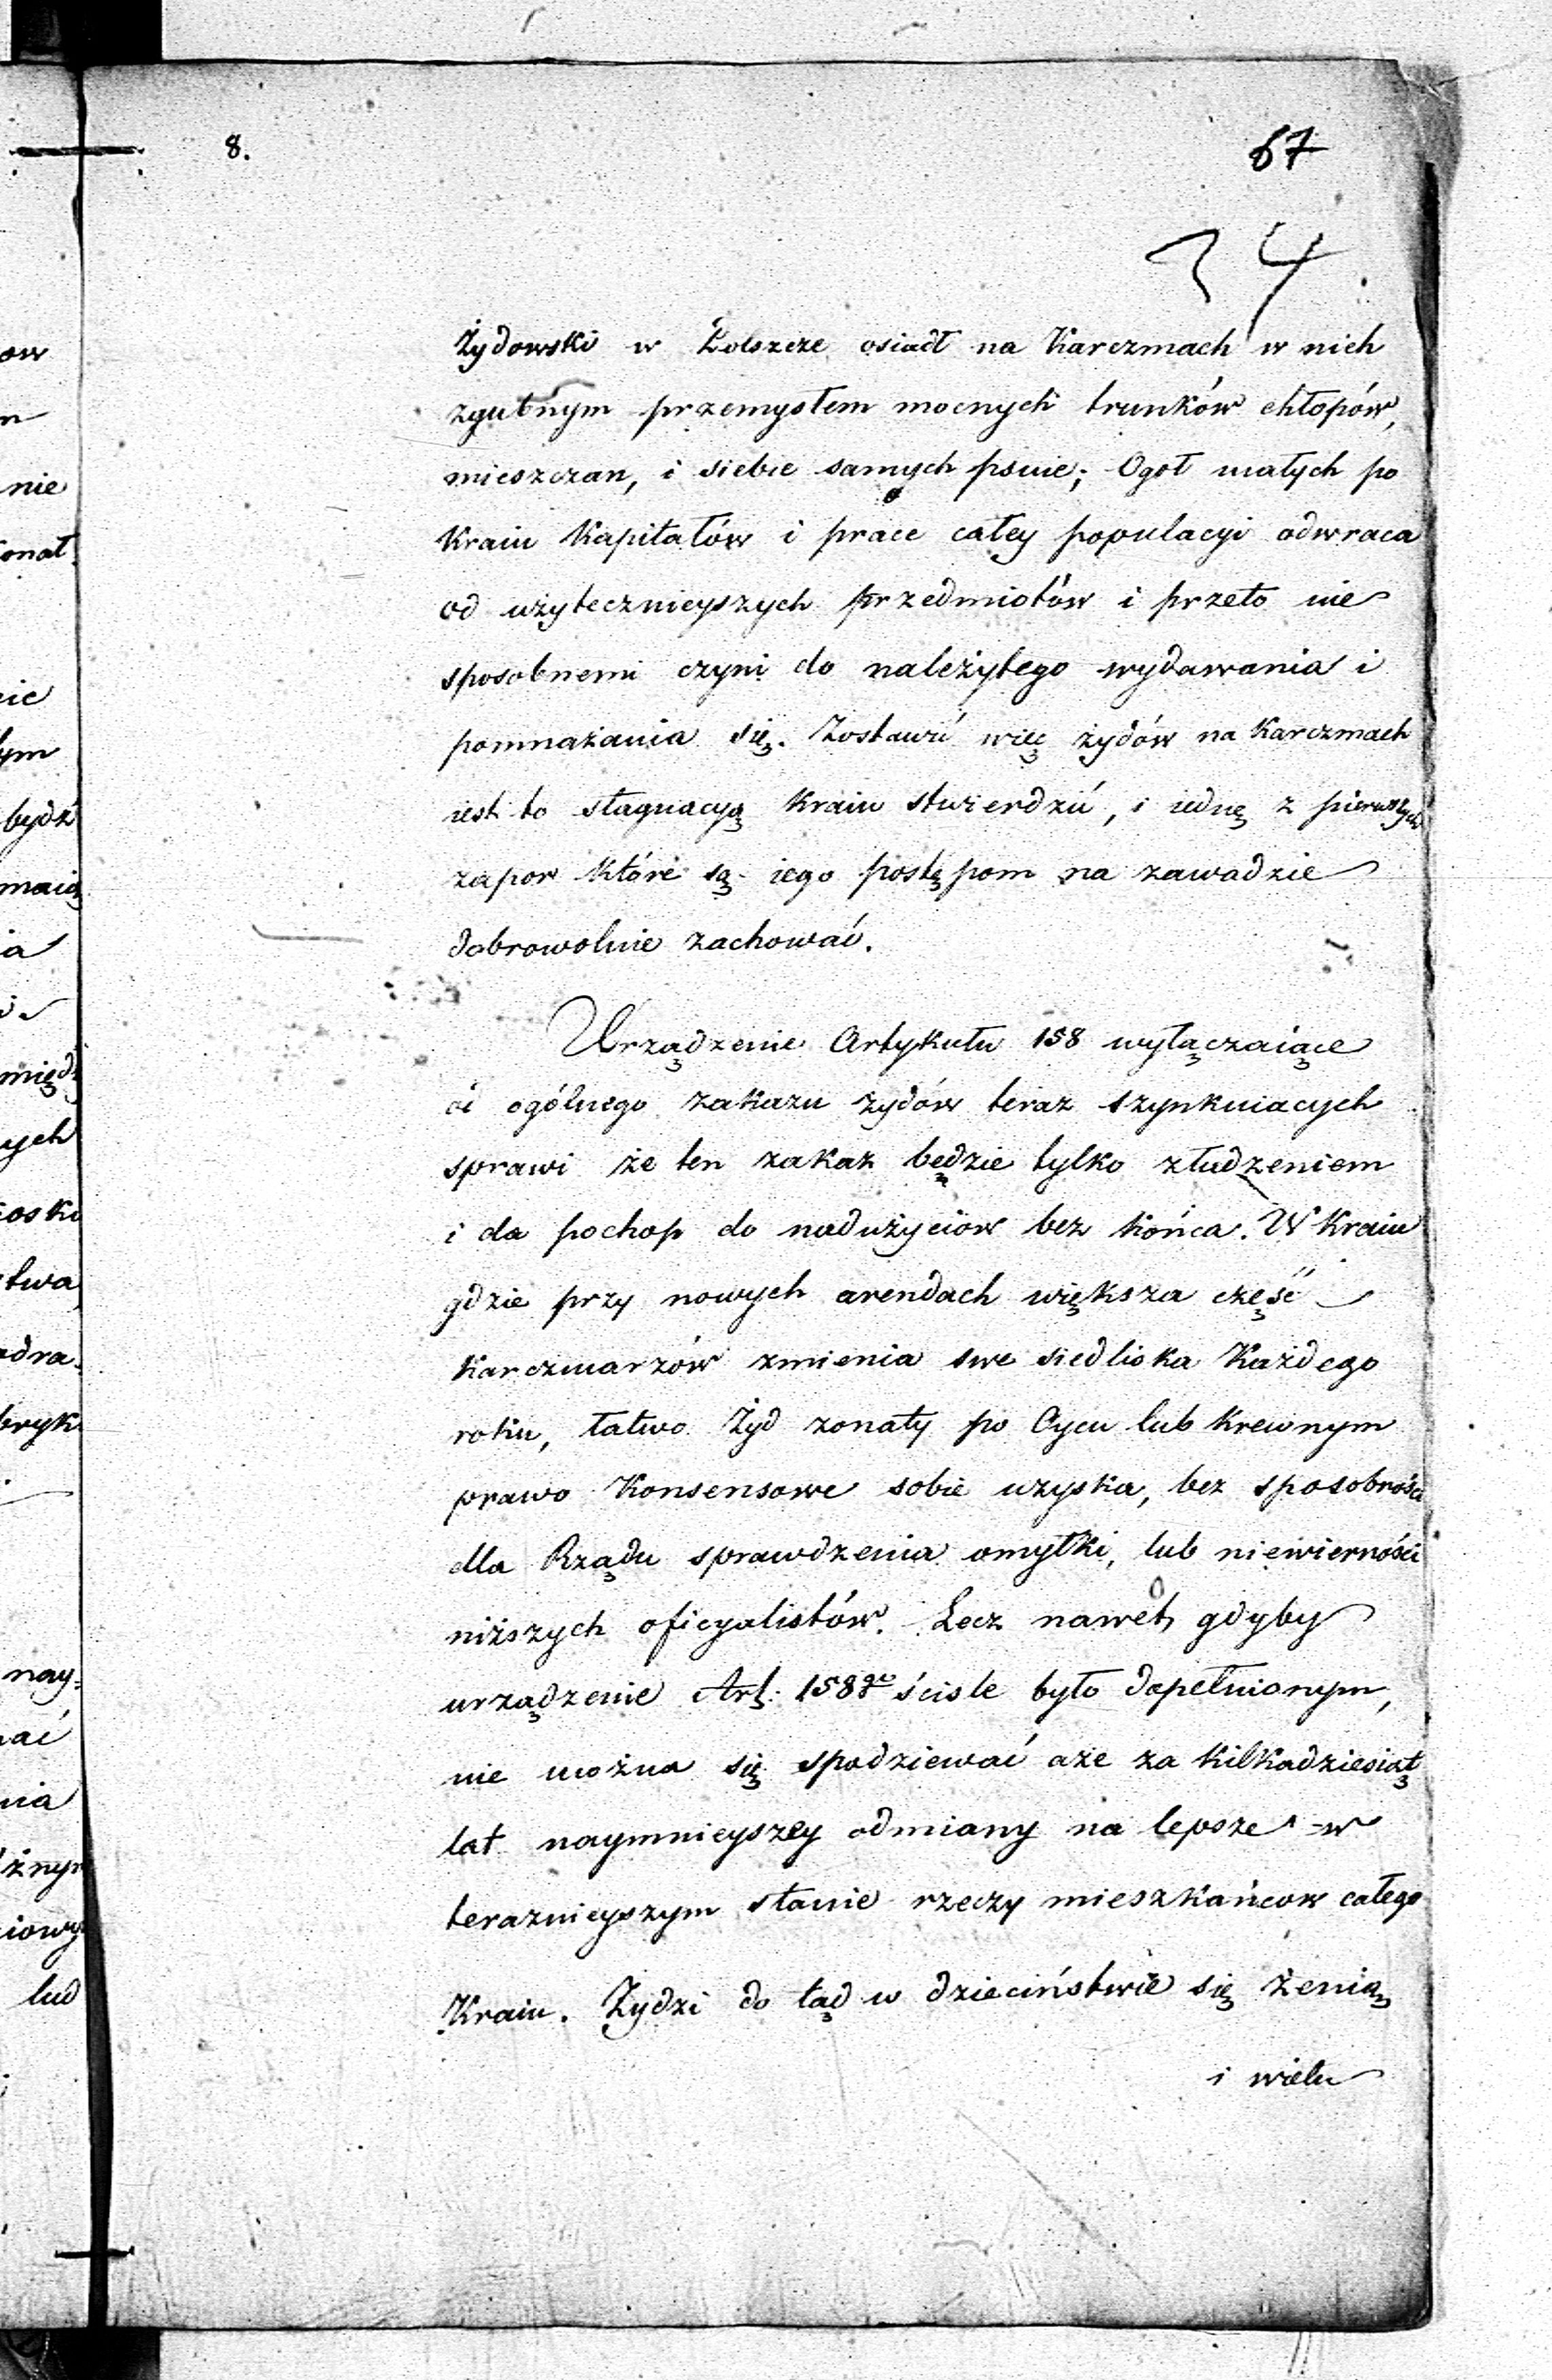 8.
67
34
Żydowski w Polszcze osiadł na Karczmach w nich
zgubnym przemysłem mocnych trunków chłopów,
mieszczan, i siebie samych psuie; Ogoł małych po
Kraiu Kapitałów i prace całey populacyi odwraca
od użytecznieyszych przedmiotów i przeto nie
sposobnemi czyni do należytego wydawania i
pomnażania się. Zostawić więc żydów na Karczmach
iest to stagnacyą Kraiu stwierdzić, i iednę z pierwszych
zapor które są iego postępom na zawadzie
dobrowolnie zachować.
Urządzenie Artykułu 158 wyłączaiące
od ogólnego zakazu żydów teraz szynkuiacych
sprawi że ten zakaz będzie tylko złudzeniem
i da pochop do nadużyciow bez końca. W Kraiu
gdzie przy nowych arendach większa część
Karczmarzów zmienia swe siedliska Każdego
roku, łatwo Żyd zonaty po Oycu lub Krewnym
prawo Konsensowe sobie uzyska, bez sposobności
dla Rządu sprawdzenia omyłki, lub niewierności
niższych oficyalistów. Lecz nawet gdyby
urządzenie Art: 158go ściśle było dopełnionym,
nie można się spodziewać aże za kilkadziesiąt
lat naymnieyszey odmiany na lepsze w
teraznieyszym stanie rzeczy mieszkańcow całego
Kraiu. Żydzi do tąd w dzieciństwie się żenią
i wielu
ow
nie
bydź
maią
ych
twa
nay=
lud